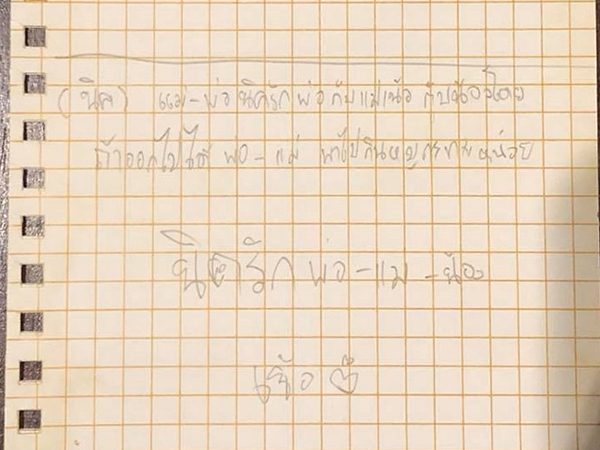 (นิค) แม่-พ่อ นิครัก พ่อ กับ แม่ เน้อ กับน้องโตย
ถ้าออกไปได้ พ่อ - แม่ พาไปกินหมูกระทะ หน่อย
นิครัก พ่อ - แม่ - น้อง
เน้อ ♡